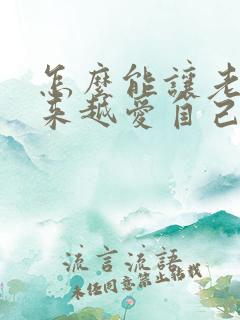 怎麼能讓老
來越愛自己
流言流語
未任同意禁止轉載